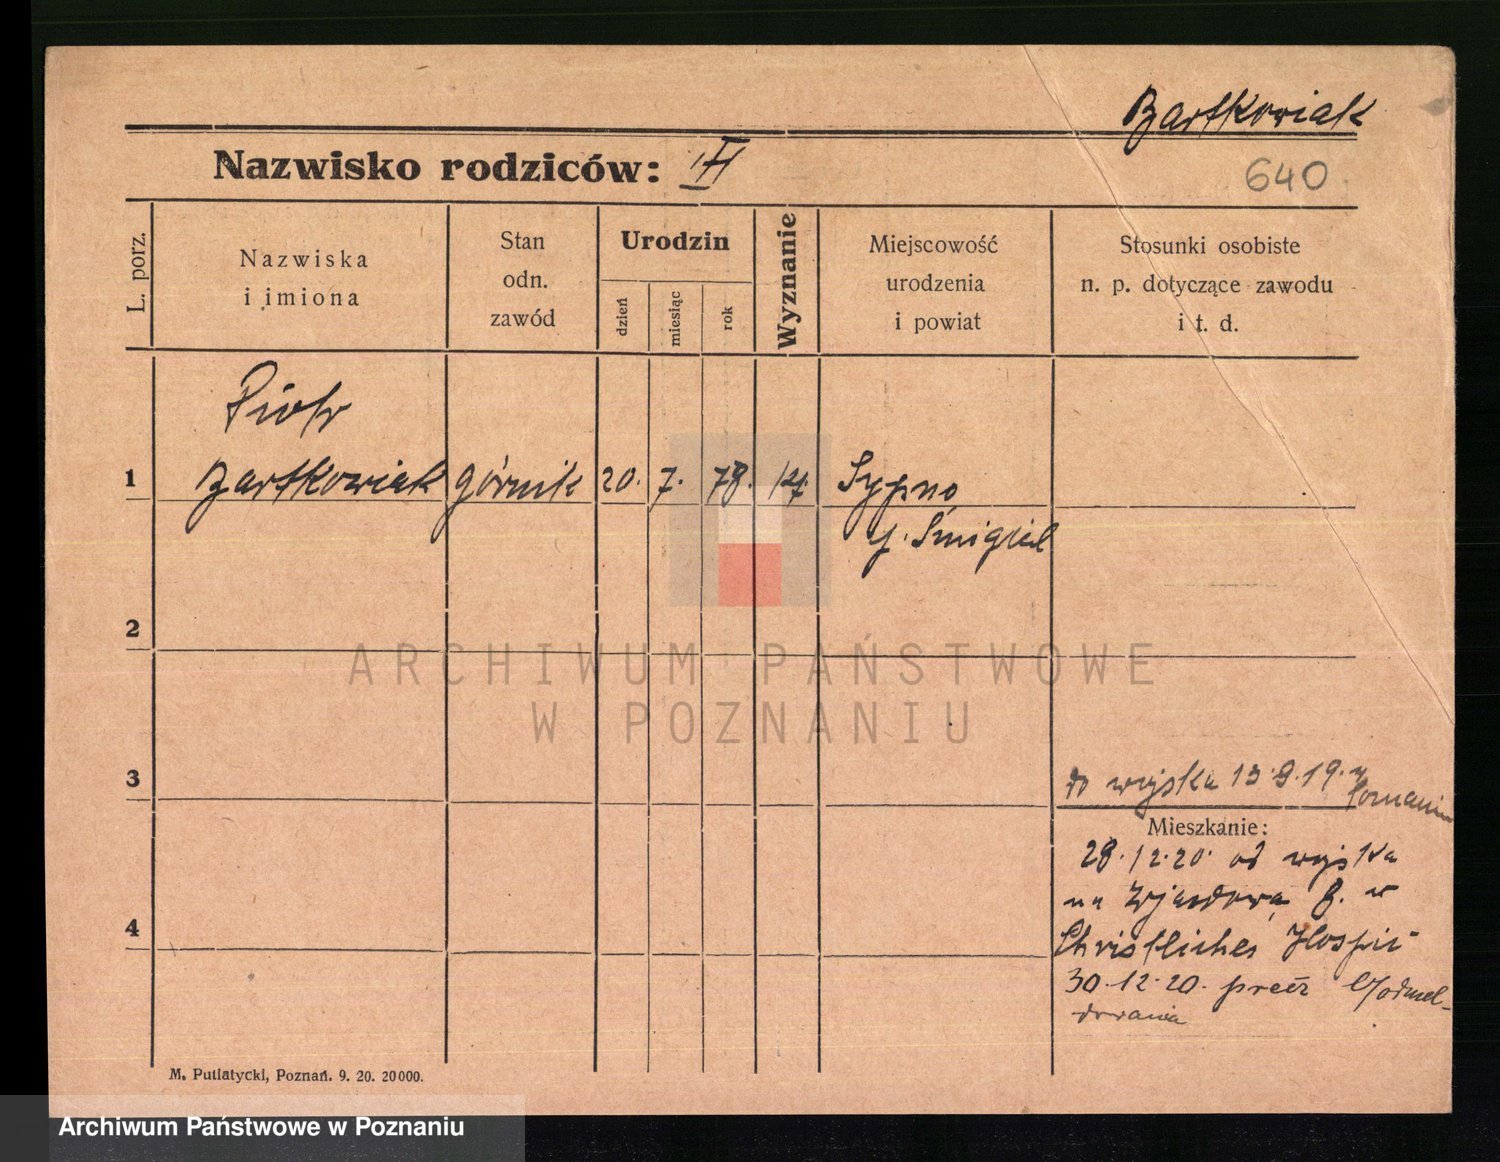 Bartkowiak
Nazwisko rodziców: VI
640
L. porz.
Nazwiska
i imiona
Stan
odn.
zawód
Urodzin
dzień
miesiąc
rok
Wyznanie
Miejscowość
urodzenia
i powiat
Stosunki osobiste
n. p. dotyczące zawodu
i t. d.
Piotr
1 Bartkowiak górnik 20. 7. 78. Sypno
p. Śmigiel
2
3
do wojska 13.9.19. w
Poznaniu
Mieszkanie:
28.12.20. od wojska
na Zjazdową 8. w
4
Christliches Hospiz
30.12.20. precz
M. Putiatycki, Poznań. 9. 20. 20000.
ARCHIWUM PAŃSTWOWE
W POZNANIU
Archiwum Państwowe w Poznaniu